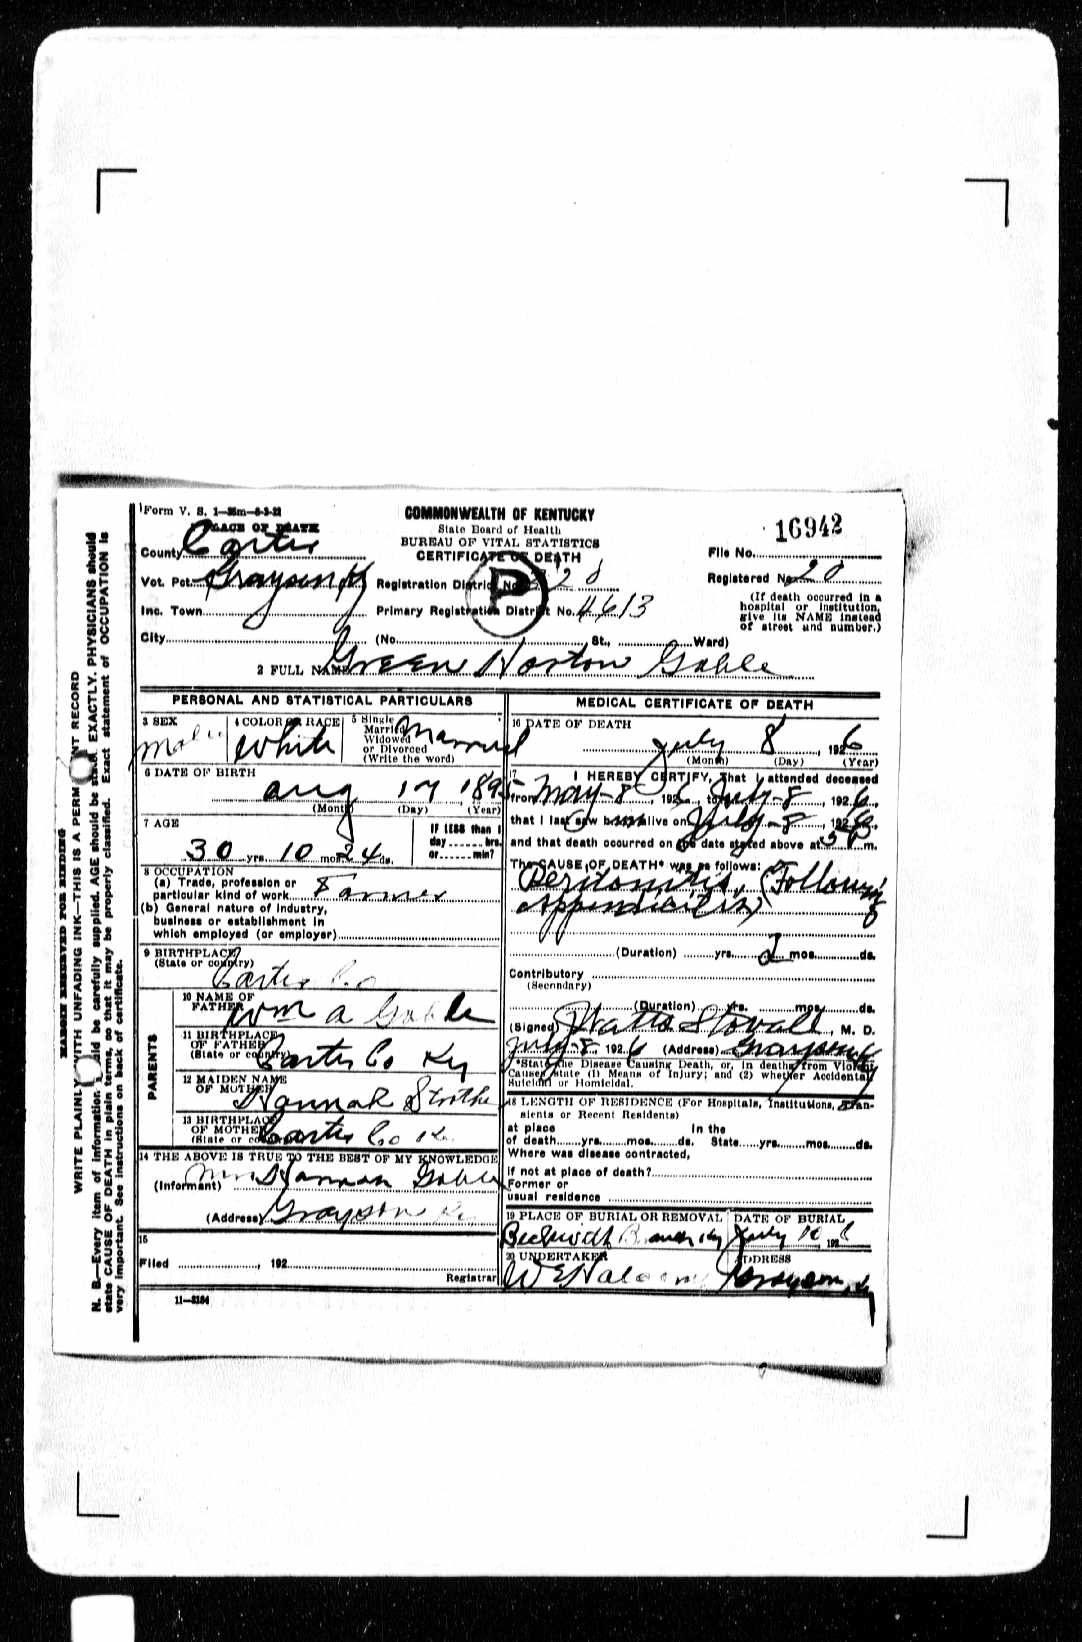 Form V. S. 1—35m—8-3-22
PLACE OF DEATH
COMMONWEALTH OF KENTUCKY
State Board of Health
BUREAU OF VITAL STATISTICS
CERTIFICATE OF DEATH
16942
County Carter
File No.
Vot. Pct. Grayson Ky Registration District No. 20
Registered No. 20
(If death occurred in a
hospital or institution,
give its NAME instead
of street and number.)
Inc. Town Primary Registration District No. 4613
P
City (No. St., Ward)
2 FULL NAME Green Horton Gable
PERSONAL AND STATISTICAL PARTICULARS
3 SEX Male
4 COLOR OR RACE White
5 Single
Married
Widowed
or Divorced
(Write the word)
Married
6 DATE OF BIRTH
Aug 17 1895
(Month) (Day) (Year)
7 AGE
30 yrs. 10 mos. 24 ds.
IF LESS than 1
day hrs.
or min?
8 OCCUPATION
(a) Trade, profession or
particular kind of work Farmer
(b) General nature of industry,
business or establishment in
which employed (or employer)
9 BIRTHPLACE
(State or country)
Carter Co
PARENTS
10 NAME OF
FATHER Wm A Gable
11 BIRTHPLACE
OF FATHER
(State or country) Carter Co Ky
12 MAIDEN NAME
OF MOTHER Hannah Strother
13 BIRTHPLACE
OF MOTHER
(State or country) Carter Co Ky
14 THE ABOVE IS TRUE TO THE BEST OF MY KNOWLEDGE
(Informant) Mrs Hannah Gable
(Address) Grayson Ky
15
Filed , 192
Registrar
11—3184
MEDICAL CERTIFICATE OF DEATH
16 DATE OF DEATH
July 8, 1926
(Month) (Day) (Year)
17 I HEREBY CERTIFY, That I attended deceased
from May-8, 1926, to July-8, 1926,
that I last saw him alive on July-8, 1926,
and that death occurred on the date stated above at 5 P m.
The CAUSE OF DEATH* was as follows:
Peritonitis, (Following
Appendicitis)
(Duration) yrs. 2 mos. ds.
Contributory
(Secondary)
(Duration) yrs. mos. ds.
(Signed) J Watts Stovall, M. D.
July-8, 1926 (Address) Grayson Ky
*State the Disease Causing Death, or, in deaths from Violent
Causes state (1) Means of Injury; and (2) whether Accidental,
Suicidal or Homicidal.
18 LENGTH OF RESIDENCE (For Hospitals, Institutions, Tran-
sients or Recent Residents)
At place In the
of death yrs. mos. ds. State yrs. mos. ds.
Where was disease contracted,
if not at place of death?
Former or
usual residence
19 PLACE OF BURIAL OR REMOVAL DATE OF BURIAL
Branch Ky July 10 1926
20 UNDERTAKER ADDRESS
W E Grayson, Ky
MARGIN RESERVED FOR BINDING
WRITE PLAINLY WITH UNFADING INK—THIS IS A PERMANENT RECORD
N. B.—Every item of information should be carefully supplied. AGE should be stated EXACTLY. PHYSICIANS should
state CAUSE OF DEATH in plain terms, so that it may be properly classified. Exact statement of OCCUPATION is
very important. See instructions on back of certificate.